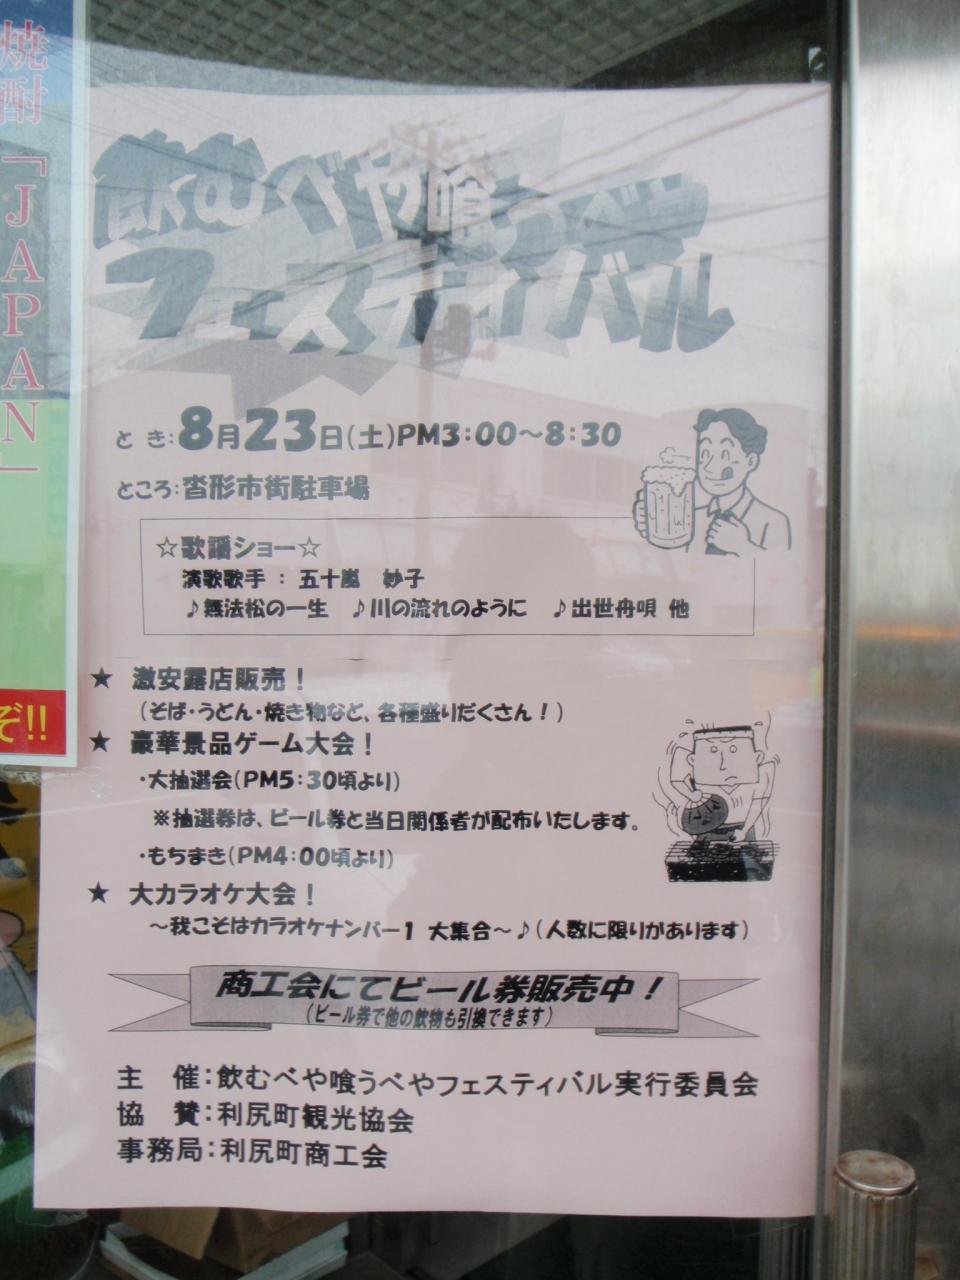 焼酎「JAPAN」
ぞ!!
飲むべや喰うべや
フェスティバル
とき:8月23日(土)PM3:00~8:30
ところ:沓形市街駐車場
☆歌謡ショー☆
演歌歌手 : 五十嵐 妙子
♪無法松の一生 ♪川の流れのように ♪出世舟唄 他
★ 激安露店販売!
(そば・うどん・焼き物など、各種盛りだくさん!)
★ 豪華景品ゲーム大会!
・大抽選会(PM5:30頃より)
※抽選券は、ビール券と当日関係者が配布いたします。
・もちまき(PM4:00頃より)
★ 大カラオケ大会!
~我こそはカラオケナンバー1 大集合~♪(人数に限りがあります)
商工会にてビール券販売中!
(ビール券で他の飲物も引換できます)
主 催:飲むべや喰うべやフェスティバル実行委員会
協 賛:利尻町観光協会
事務局:利尻町商工会